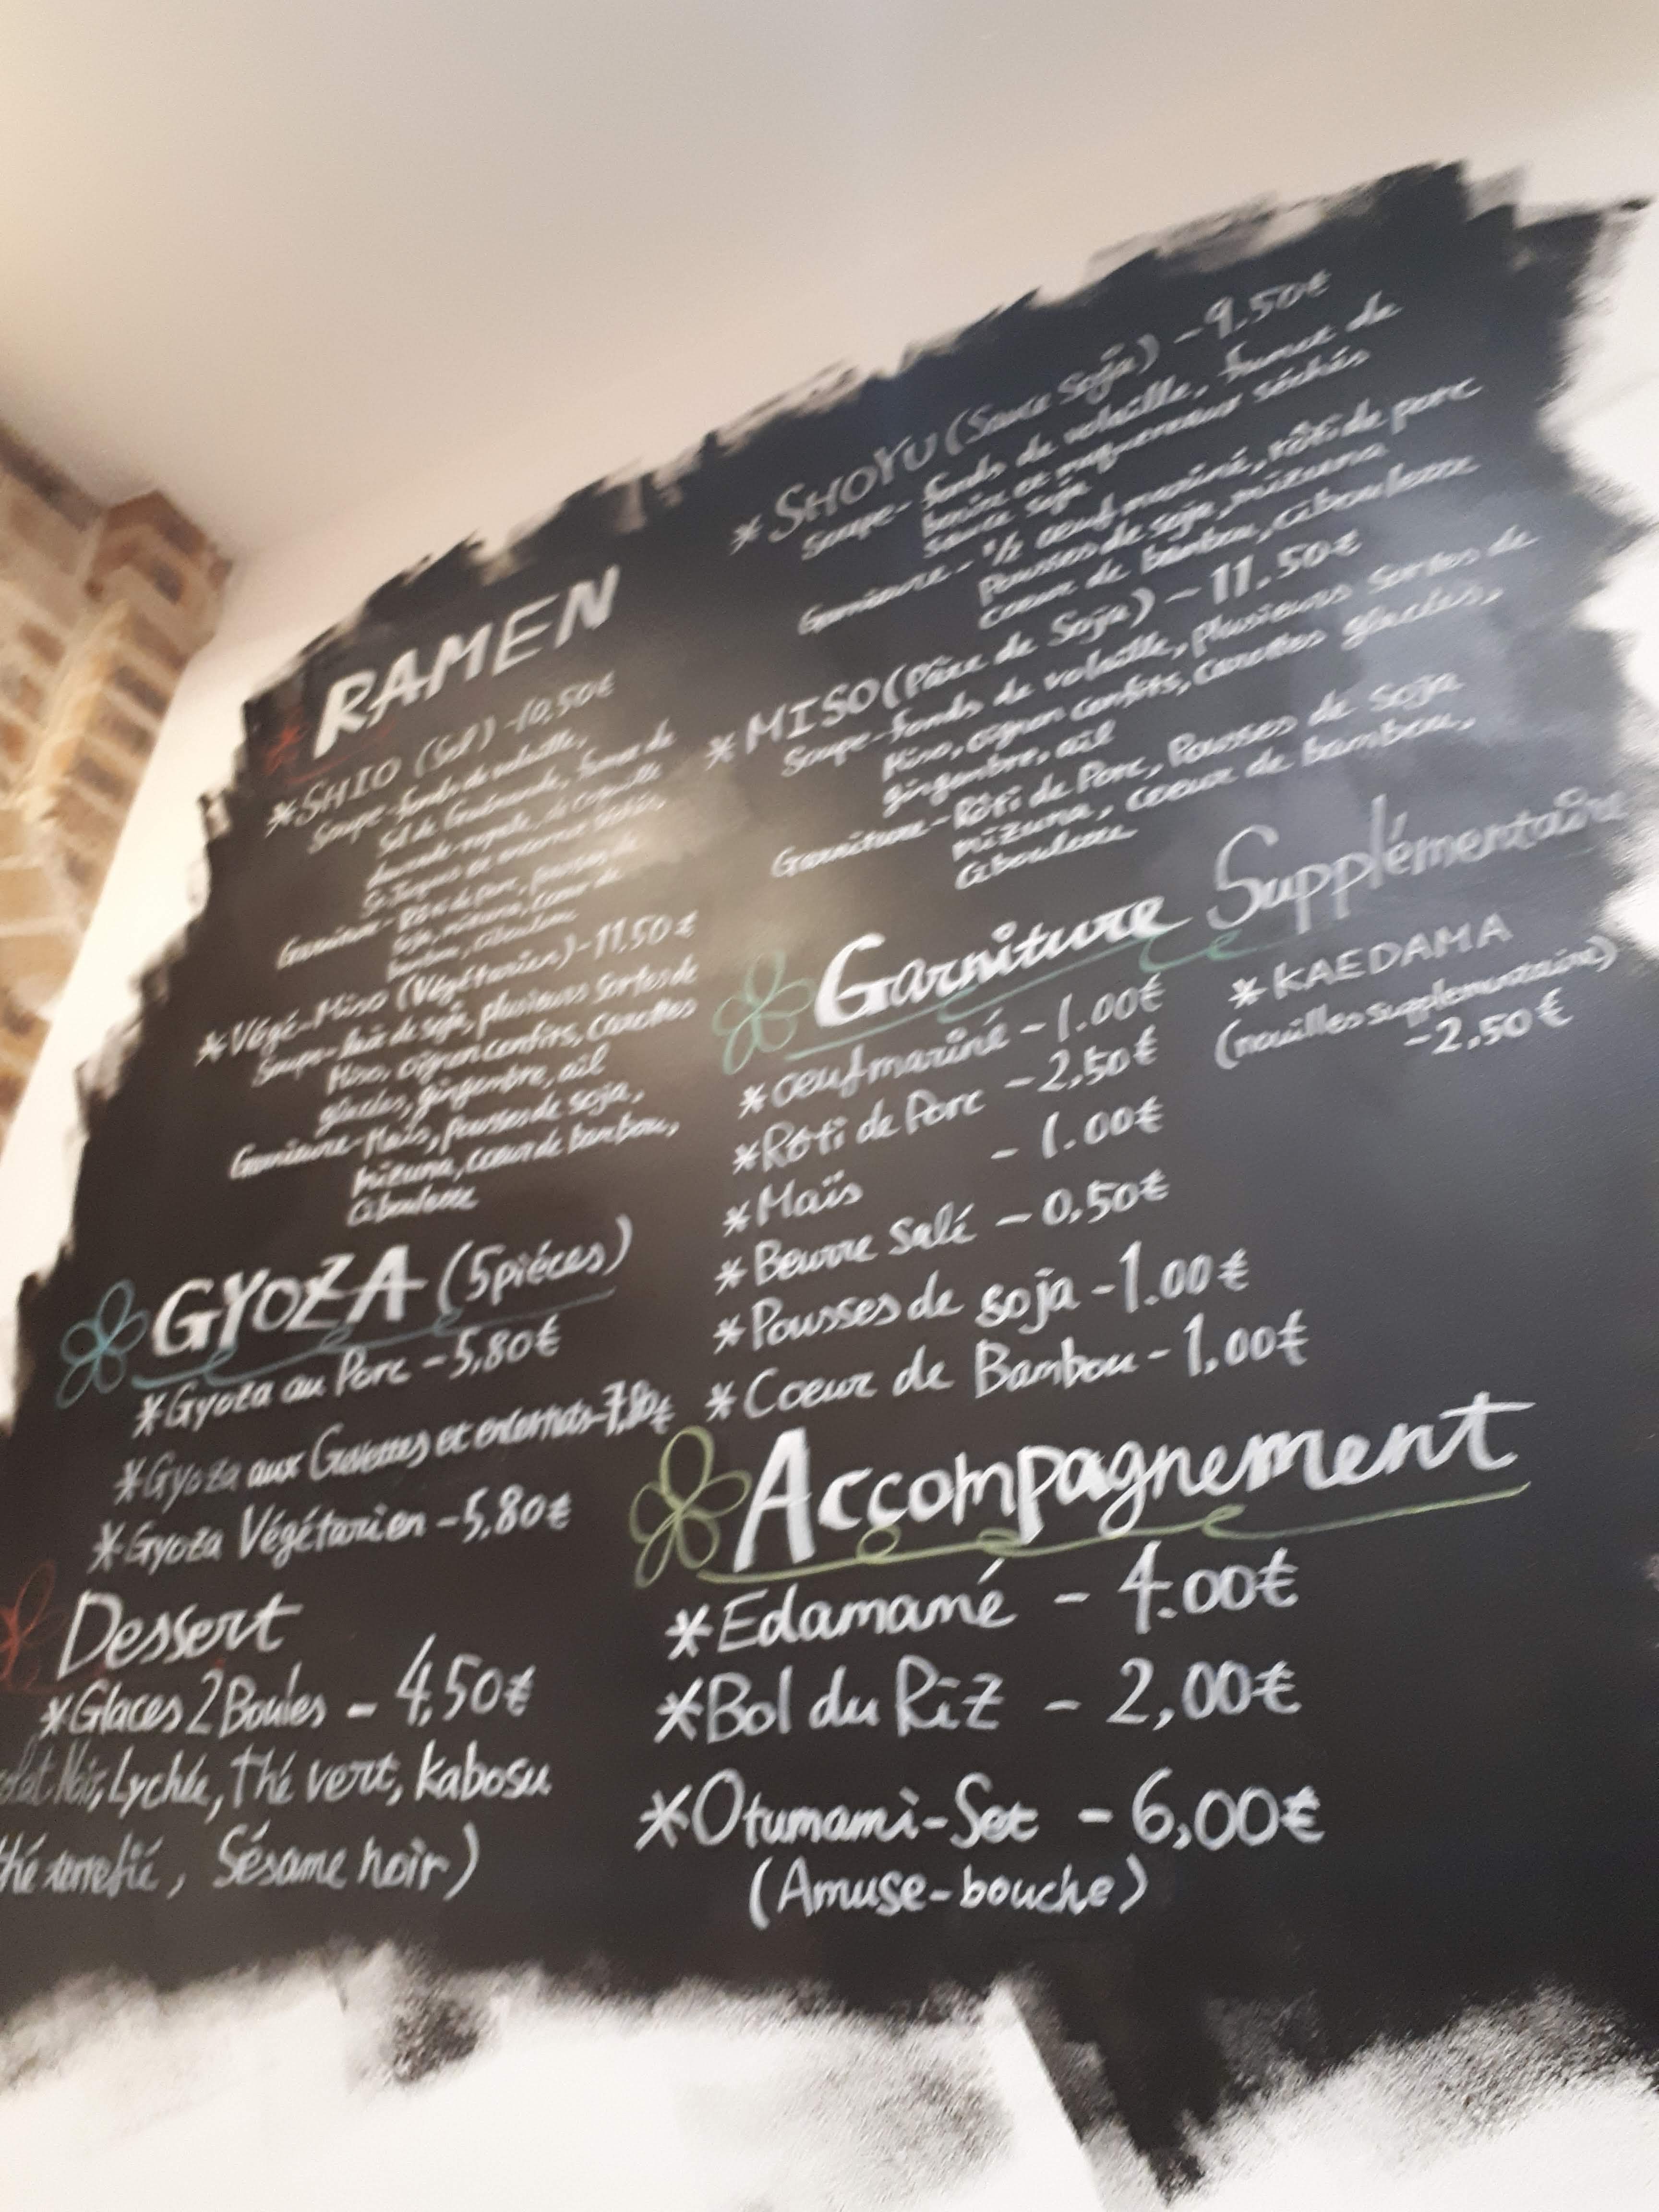 RAMEN
*SHIO (Sel) - 10,50€
Soupe - fonds de volaille,
Sel de Guérande, fumet de
St Jacques et
Garniture - Rôti de porc, pousses de
Soja, mizuna, coeur de
bambou, ciboulette
*Végé-Miso (Végétarien) - 11,50€
Soupe - lait de soja, plusieurs sortes de
Miso, oignon confits, carottes
glacées, gingembre, ail
Garniture - Maïs, pousses de soja,
mizuna, coeur de bambou,
Ciboulette
GYOZA (5 piéces)
*Gyoza au Porc - 5,80€
*Gyoza aux Crevettes et
*Gyoza Végétarien - 5,80€
Dessert
*Glaces 2 Boules - 4,50€
Noir, Lychée, Thé vert, Kabosu
thé torréfié, Sésame noir)
*SHOYU (Sauce Soja) - 9,50€
Soupe - fonds de volaille, fumet de
bonite et maquereaux séchés
Sauce soja
Garniture - 1/2 oeuf mariné, rôti de porc
Pousses de soja, mizuna
coeur de bambou, ciboulette
*MISO (Pâte de Soja) - 11.50€
Soupe - fonds de volaille, plusieurs sortes de
Miso, oignon confits, carottes glacées,
gingembre, ail
Garniture - Rôti de Porc, Pousses de Soja
mizuna, coeur de bambou,
Ciboulette
Garniture Supplémentaire
*oeuf mariné - 1.00€
*Rôti de Porc - 2,50€
*Maïs - 1.00€
*Beurre Salé - 0,50€
*Pousses de soja - 1.00€
*Coeur de Bambou - 1,00€
*KAEDAMA
(nouilles supplémentaire)
- 2,50€
Accompagnement
*Edamamé - 4.00€
*Bol du Riz - 2,00€
*Otumami-Set - 6,00€
(Amuse-bouche)